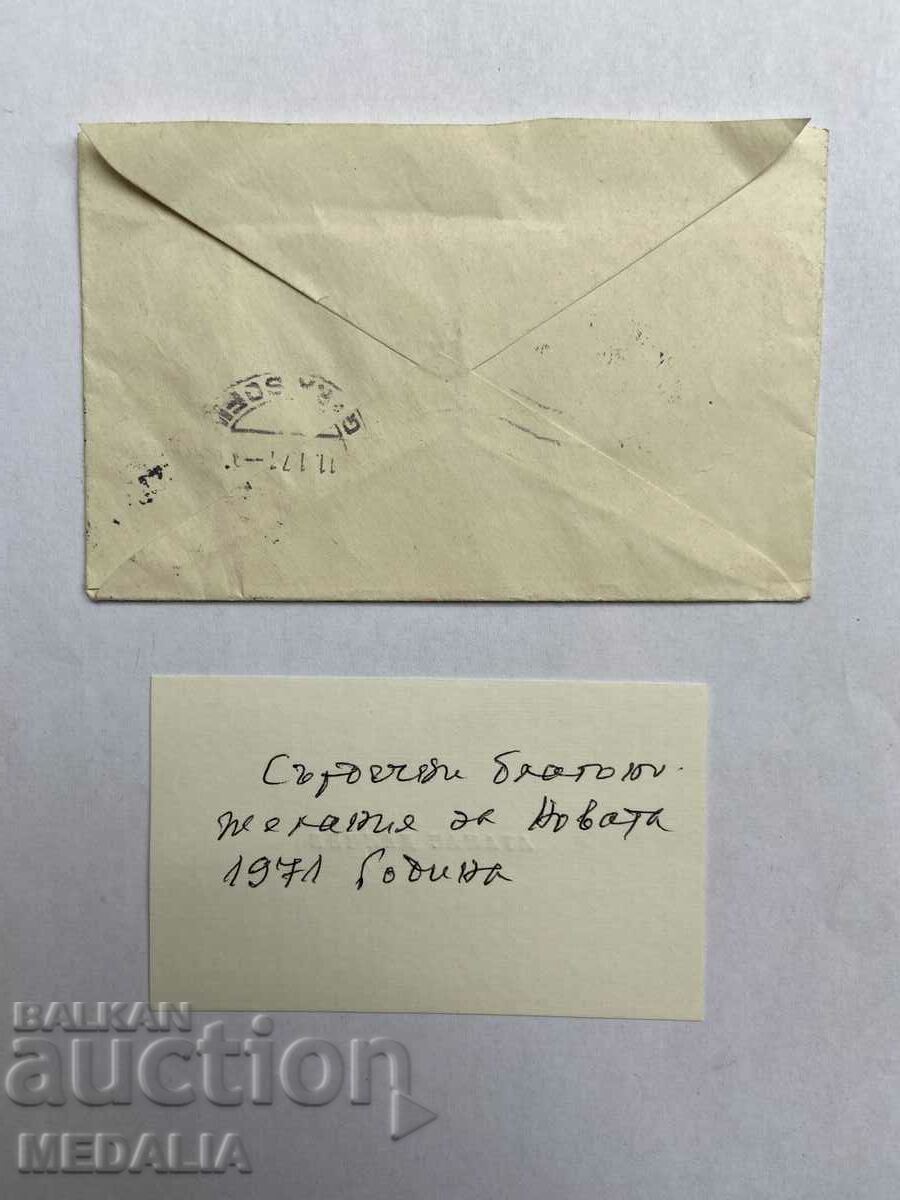 SOFI
11.1.71
Сърдечни благопо-
желания за Новата
1971 Година
BALKAN
auction
MEDALIA